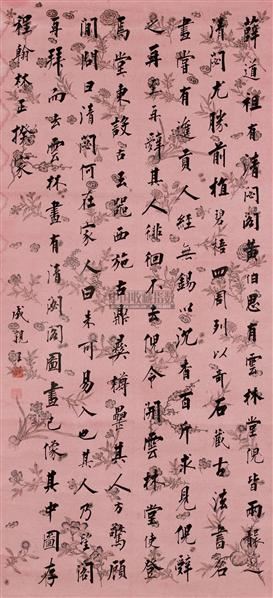 薛道祖有清閟阁黄伯思有云林堂倪皆两袭之
清閟尤勝前植碧梧四周列以奇石蔵古法書名
畫嘗有進貢人經無錫以沉香百斤求見倪辭
之再至再辭其人徘徊不去倪令開雲林堂使登
焉堂東設古玉器西施古鼎彝罇罍其人方驚顧
間問曰清閟何在家人曰未可易入也其人乃望閣
再拜而去雲林畫有清閟閣圖畫已像其中圖存
程翰林正揆家
成親王